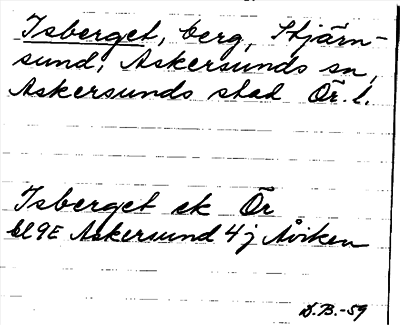 Isberget, berg, Stjärn-
sund, Askersunds sn,
Askersunds stad Ör. l.
Isberget ek Ör
bl 9E Askersund 4 j Åviken
D.B.-59